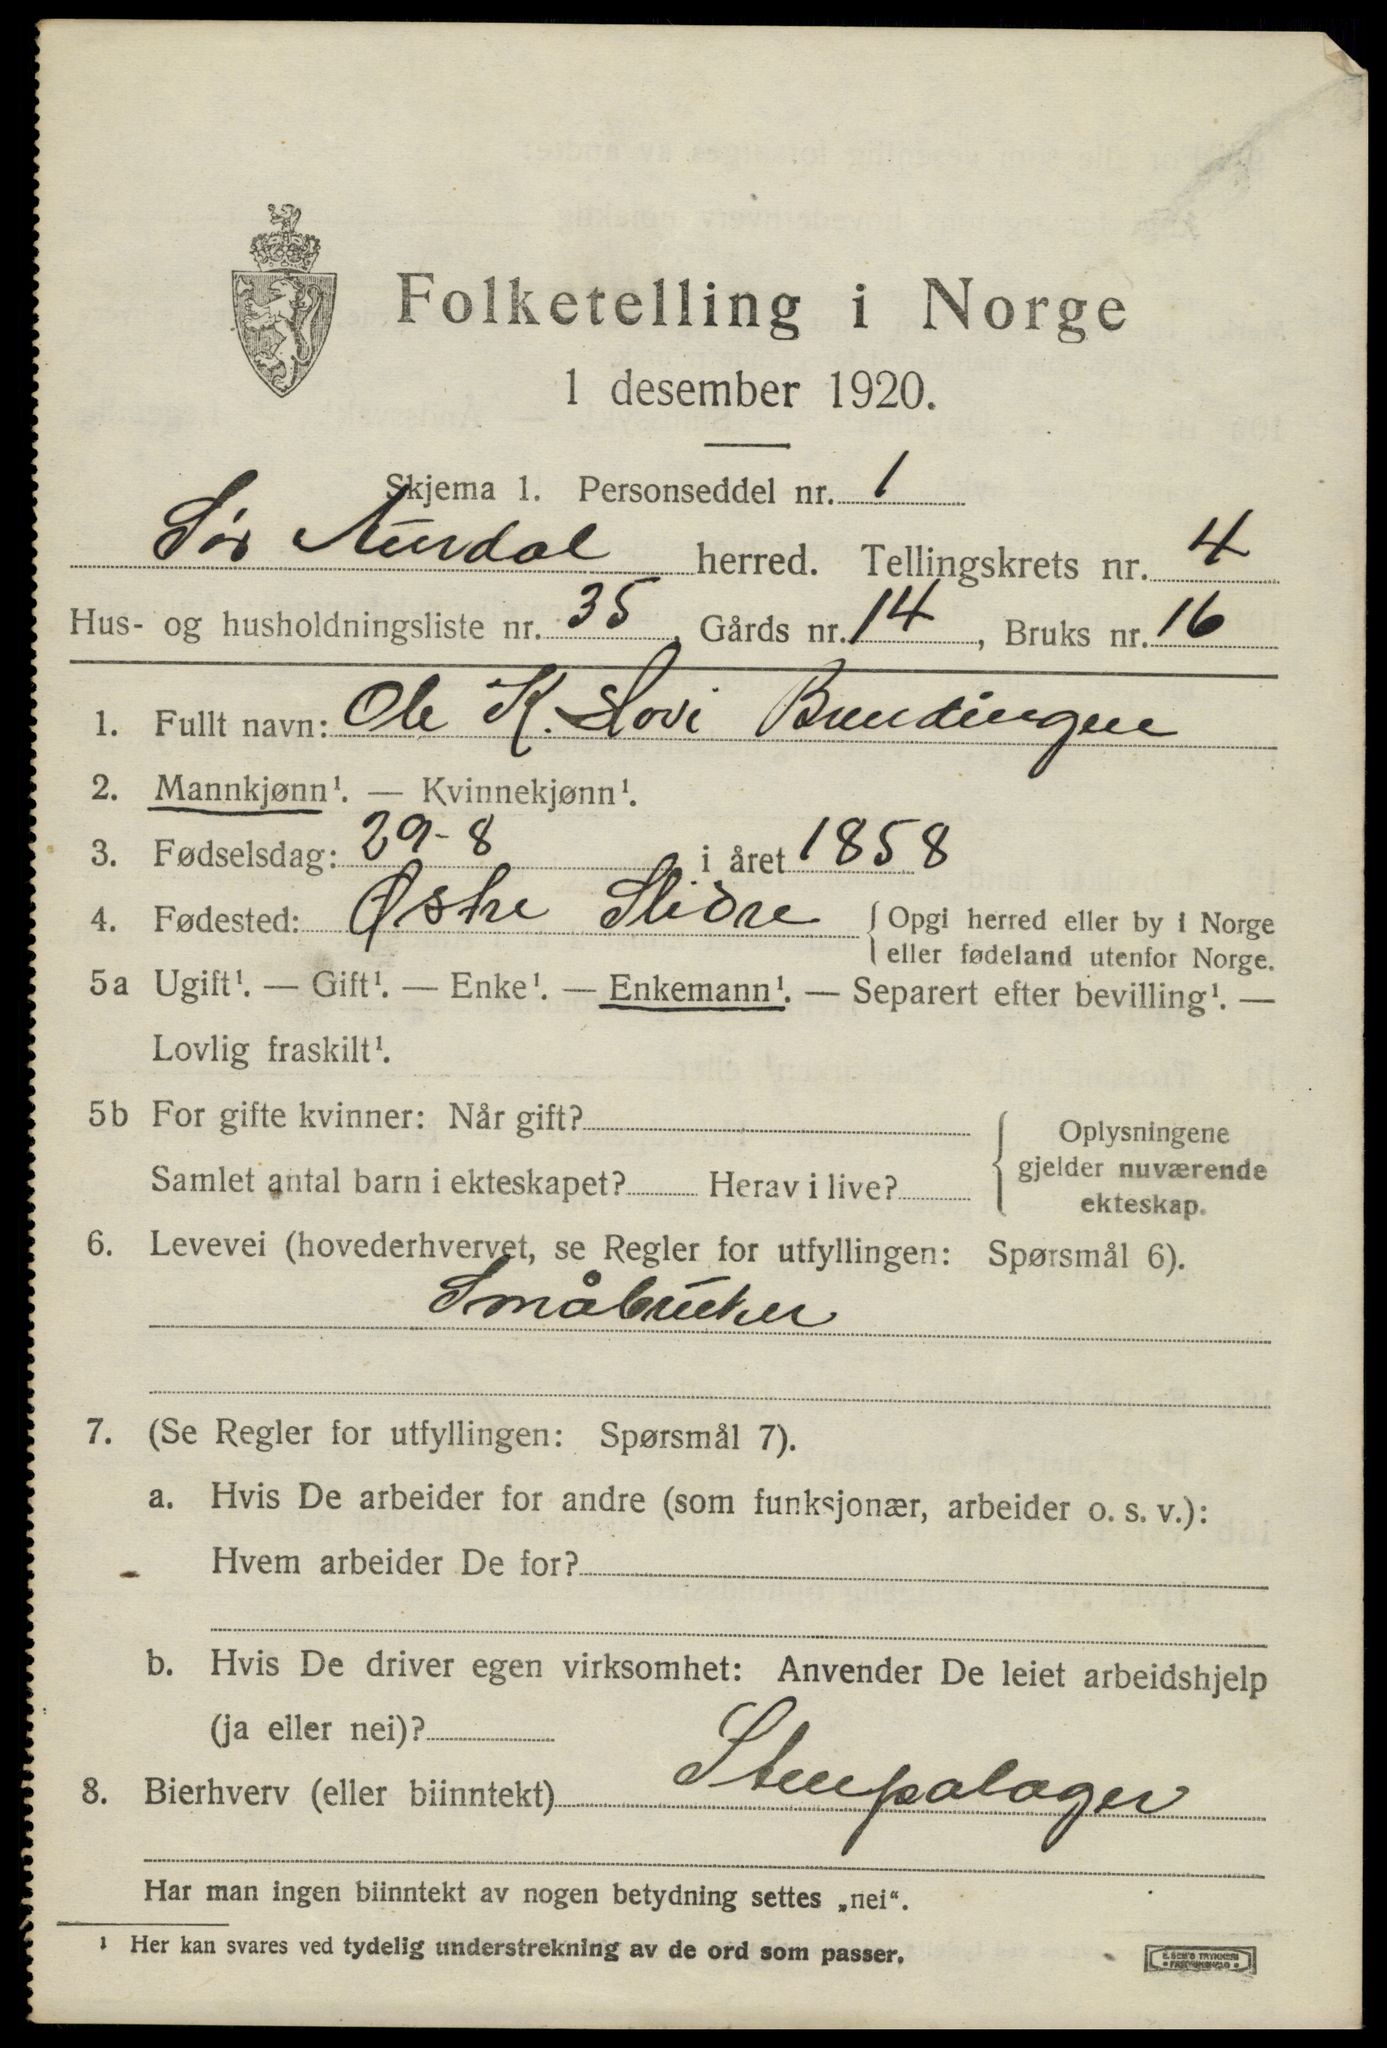 Folketelling i Norge
1 desember 1920.
Skjema 1. Personseddel nr. 1
Sør Aurdal herred. Tellingskrets nr. 4
Hus- og husholdningsliste nr. 35, Gårds nr. 14, Bruks nr. 16
1. Fullt navn: Ole K. Lovi Brundingen
2. Mannkjønn¹. — Kvinnekjønn¹.
3. Fødselsdag: 29-8 i året 1858
4. Fødested: Østre Slidre { Opgi herred eller by i Norge
eller fødeland utenfor Norge.
5a Ugift¹. — Gift¹. — Enke¹. — Enkemann¹. — Separert efter bevilling¹. —
Lovlig fraskilt¹.
5b For gifte kvinner: Når gift?
Samlet antal barn i ekteskapet? Herav i live?
{ Oplysningene
gjelder nuværende
ekteskap.
6. Levevei (hovederhvervet, se Regler for utfyllingen: Spørsmål 6).
Småbruker
7. (Se Regler for utfyllingen: Spørsmål 7).
a. Hvis De arbeider for andre (som funksjonær, arbeider o. s. v.):
Hvem arbeider De for?
b. Hvis De driver egen virksomhet: Anvender De leiet arbeidshjelp
(ja eller nei)?
8. Bierhverv (eller biinntekt)
Har man ingen biinntekt av nogen betydning settes „nei“.
¹ Her kan svares ved tydelig understrekning av de ord som passer.